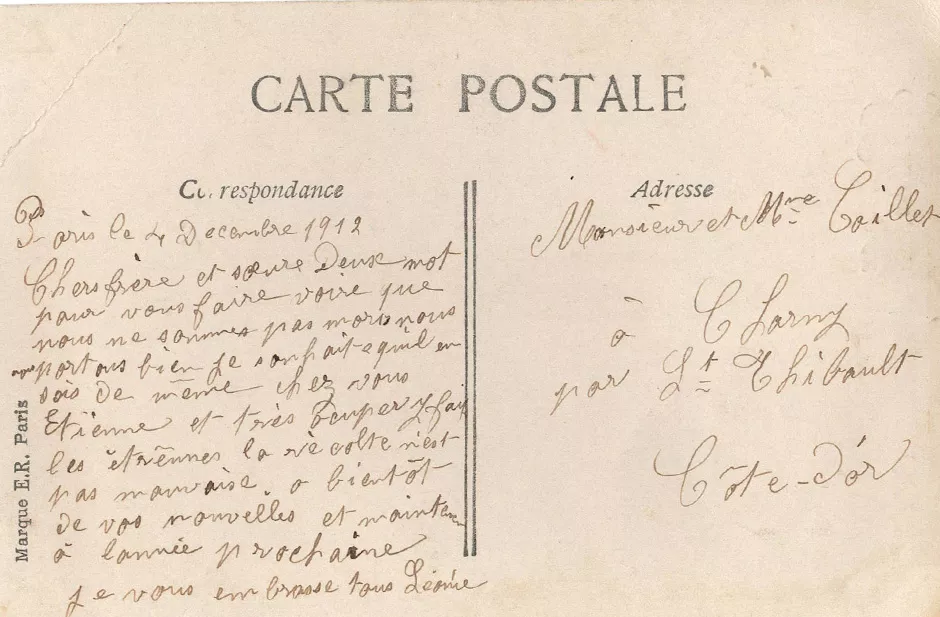 CARTE POSTALE
Correspondance
Paris le 4 Decembre 1912
Chers frère et sœure Deux mot
pour vous faire voire que
nous ne sommes pas mort nous
portons bien Je souhaite quil en
sois de même chez vous
Etienne et très ocuper y fait
les étrennes la récolte n'est
pas mauvaise a bientôt
de vos nouvelles et maintenant
à lannée prochaine
je vous embrasse tous Léonie
Marque E.R. Paris
Adresse
Monsieur et Mme Taillet
à Charny
par St Thibault
Côte-d'or